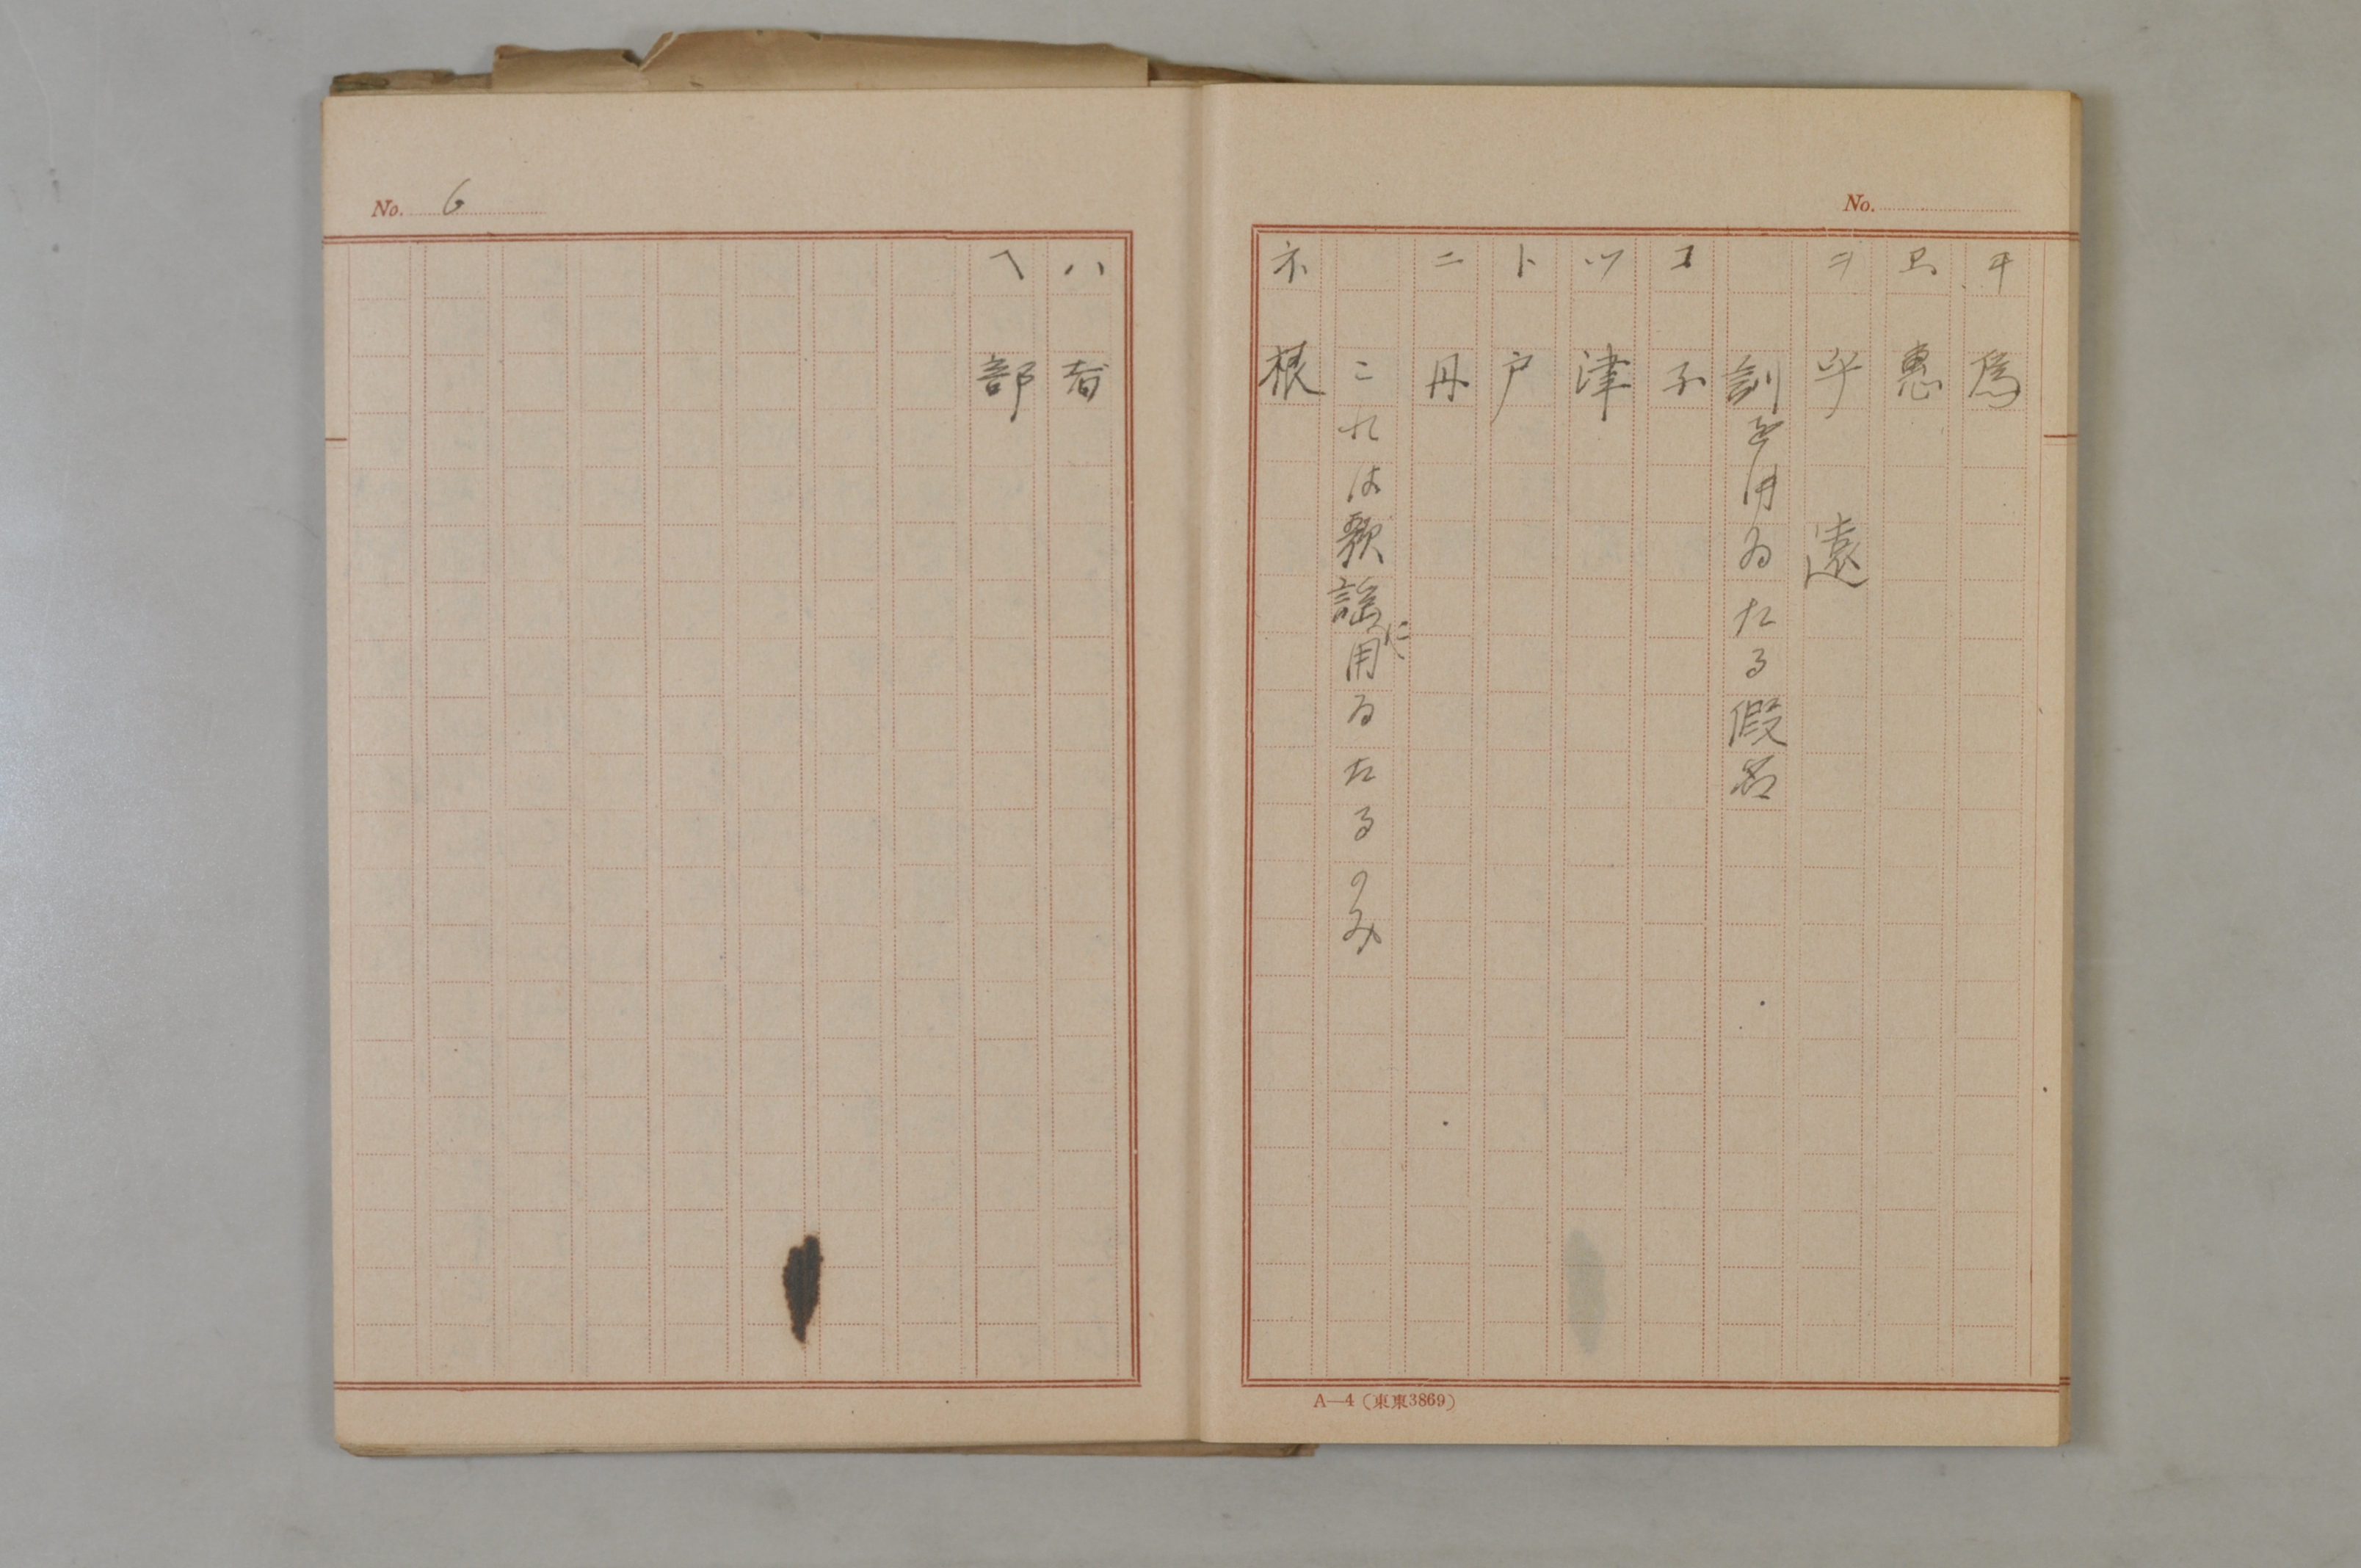 No.
ヰ 爲
ヱ 惠
ヲ 乎 遠
訓を用ゐたる假名
コ 子
ツ 津
ト 戸
ニ 丹
これは歌謡に用ゐたるのみ
ネ 根
A—4（東東3869）
No. 6
ハ 者
へ 部